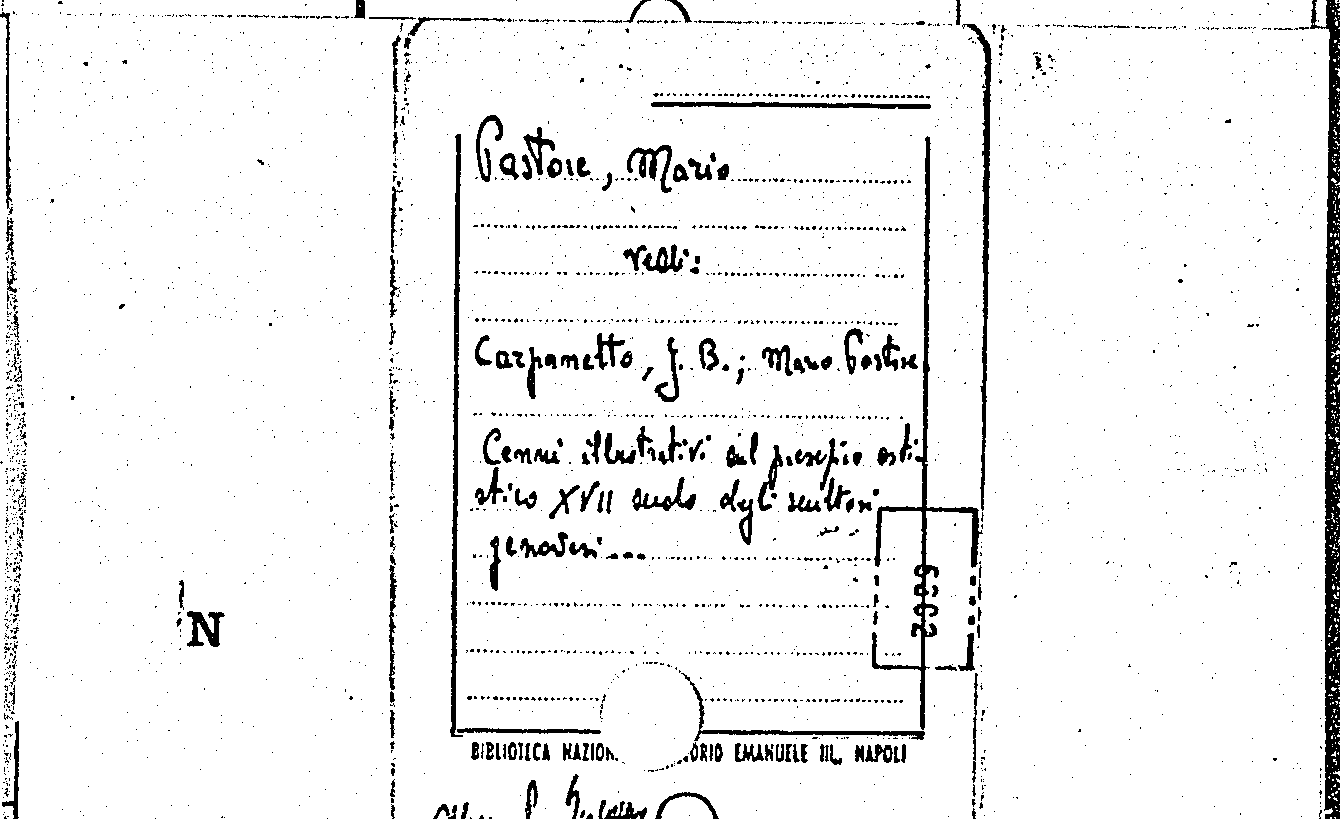 Pastore, Mario
Vedi:
Carpanetto, J. B.; Mario Pastore
Cenni illustrativi sul presepio arti-
stico XVII secolo degli scultori
genovesi...
N
BIBLIOTECA NAZION ORIO EMANUELE III, NAPOLI